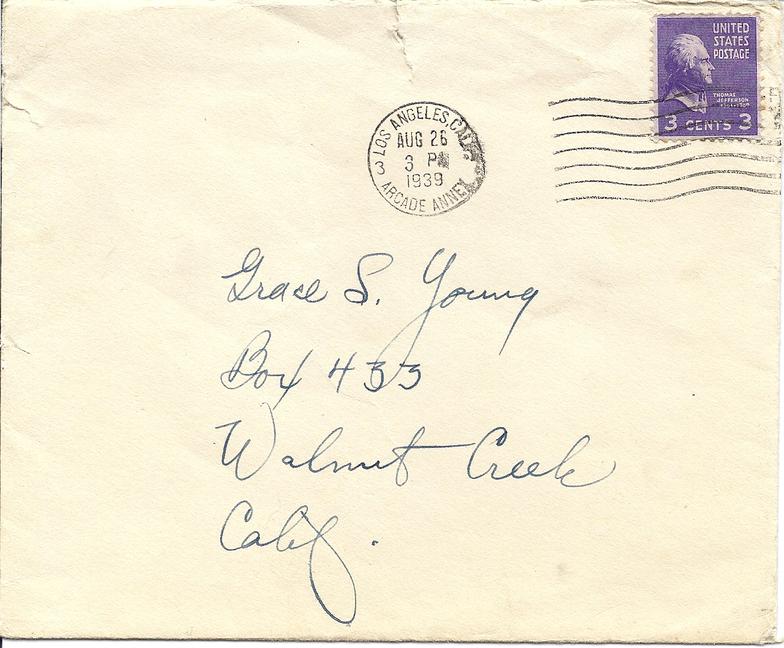 UNITED
STATES
POSTAGE
THOMAS
JEFFERSON
3 CENTS 3
LOS ANGELES, CALIF.
AUG 26
3 PM
1939
3
ARCADE ANNEX
Grace S. Young
Box 433
Walnut Creek
Calif.